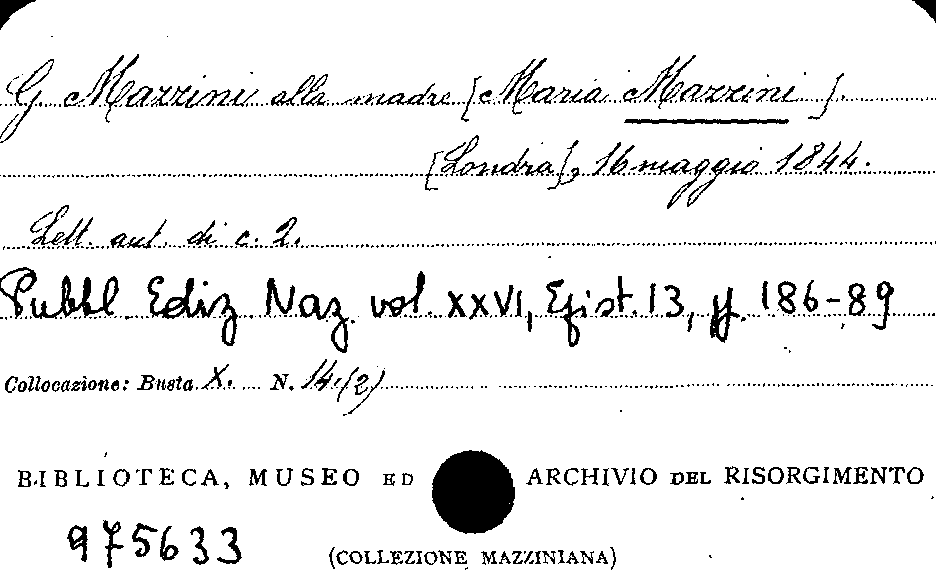 G Mazzini alla madre [Maria Mazzini].
[Londra], 16 maggio 1844.
Lett. aut. di c. 2.
Pubbl. Ediz Naz. vol. XXVI, Epist. 13, pp. 186-89
Collocazione: Busta X. N. 14.(2)
BIBLIOTECA, MUSEO ED ARCHIVIO DEL RISORGIMENTO
975633
(COLLEZIONE MAZZINIANA)